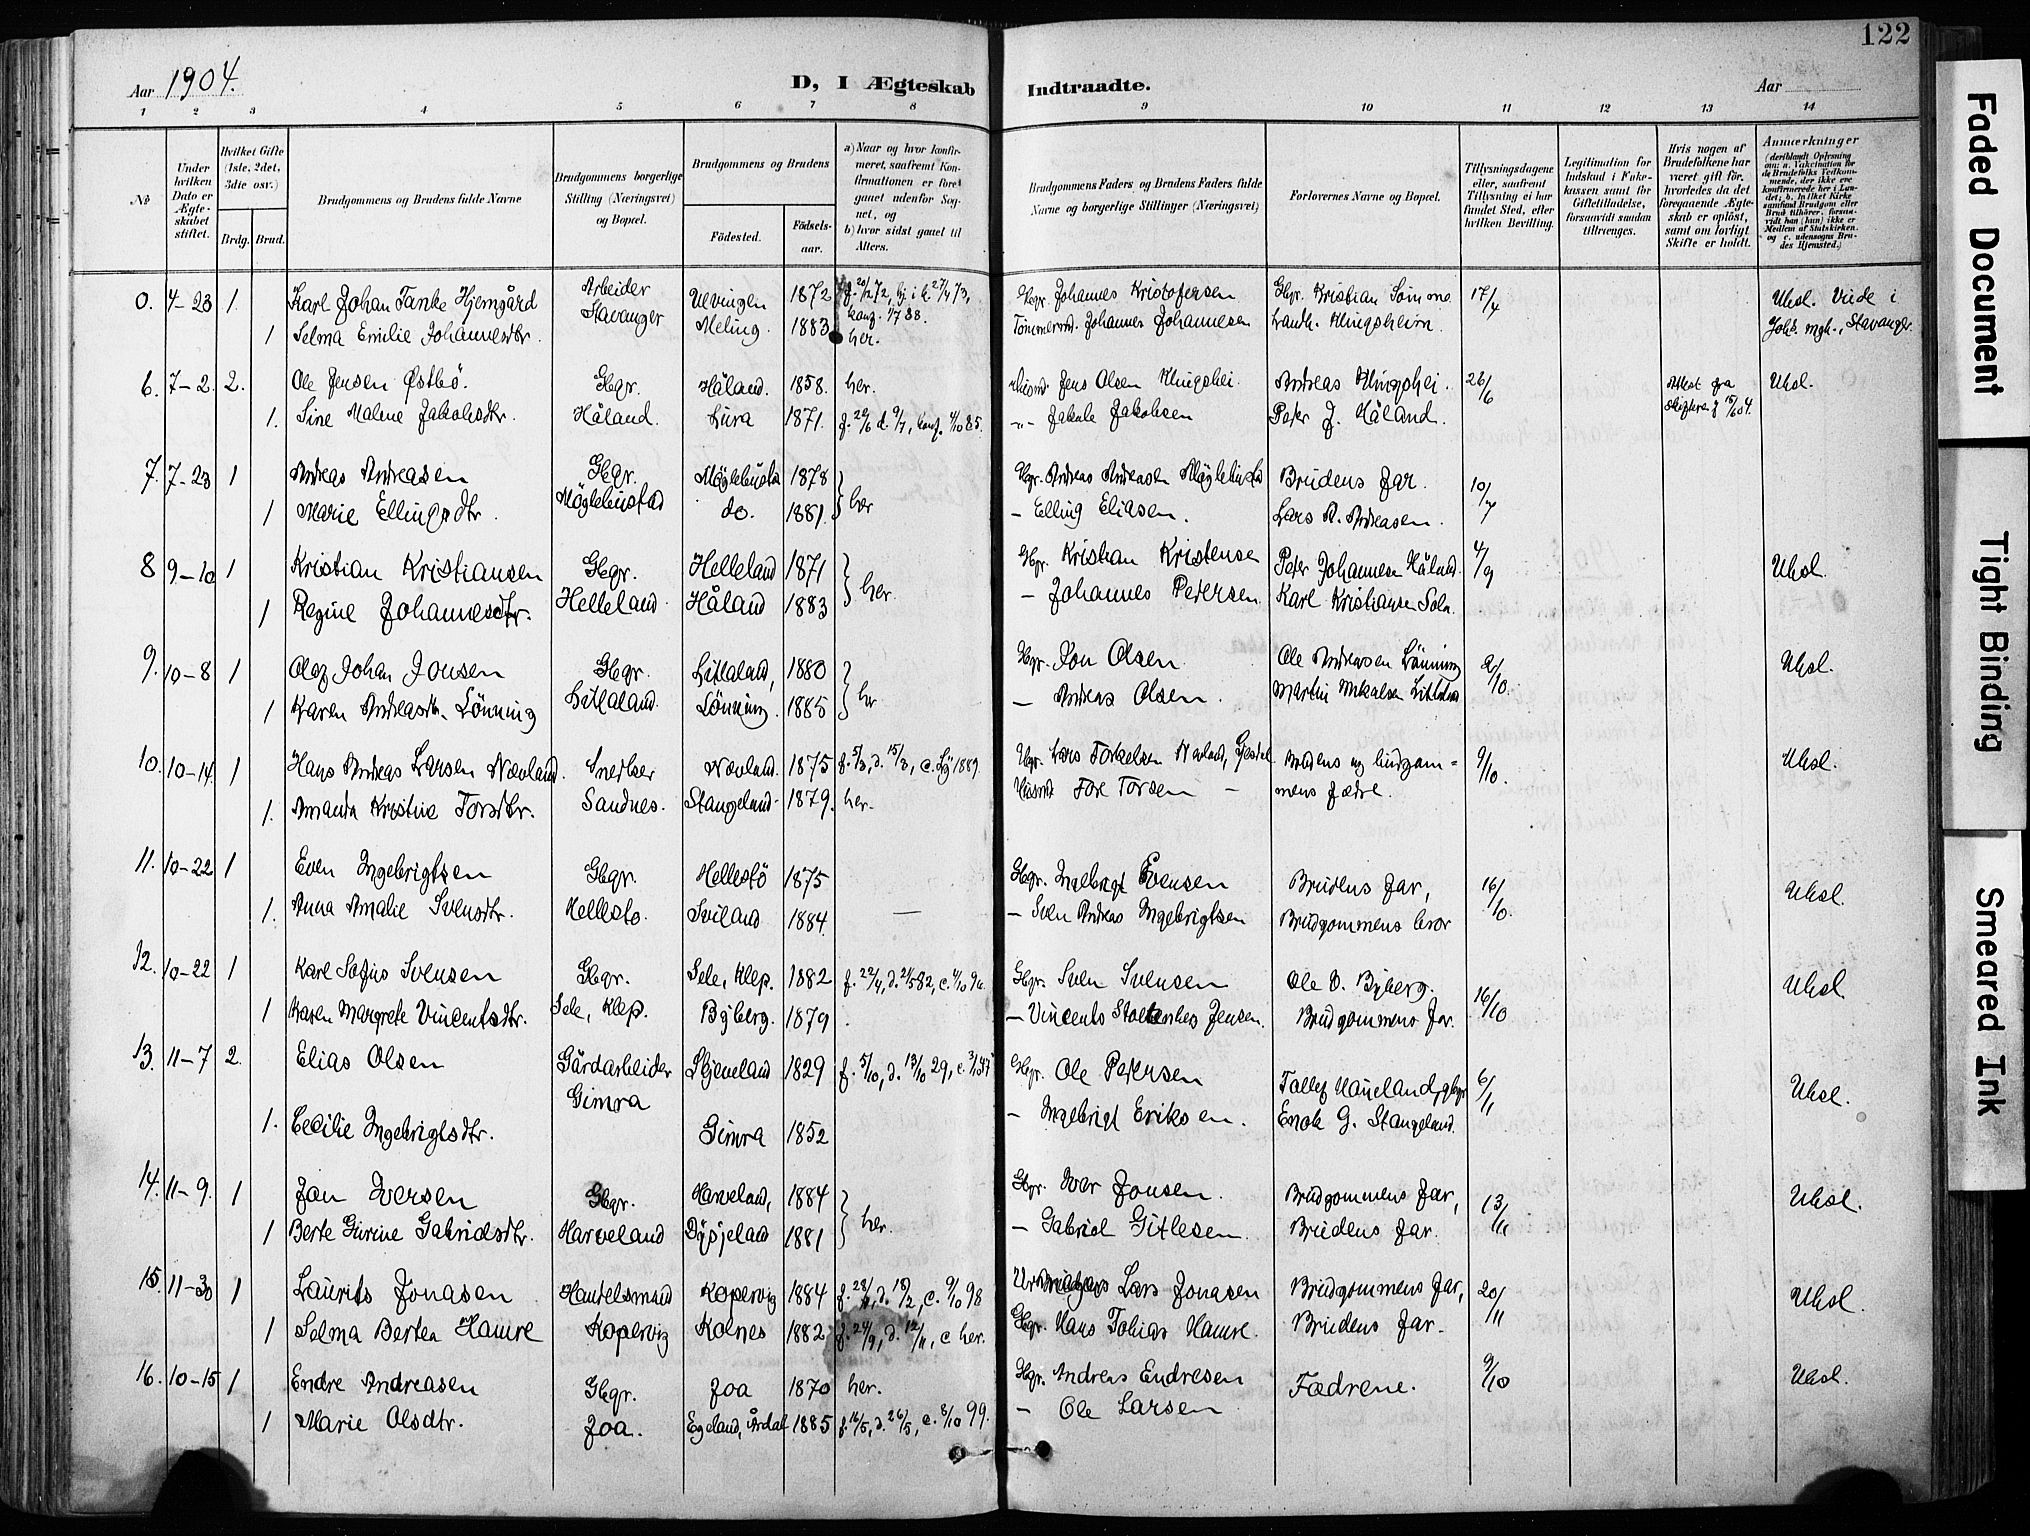 122
Aar 1904.
D, I Ægteskab Indtraadte.
Aar
1 2 3 4 5 6 7 8 9 10 11 12 13 14
No
Under hvilken Dato er Ægteskabet stiftet.
Hvilket Gifte (1ste, 2det, 3die osv.)
Brdg. Brud.
Brudgommens og Brudens fulde Navne
Brudgommens borgerlige Stilling (Næringsvei) og Bopæl.
Brudgommens og Brudens
Fødested. Fødselsaar.
a) Naar og hvor konfirmeret, saafremt Konfirmationen er foregaaet udenfor Sognet, og
b) hvor sidst gaaet til Alters.
Brudgommens Faders og Brudens Faders fulde Navne og borgerlige Stillinger (Næringsvei)
Forlovernes Navne og Bopæl.
Tillysningsdagene eller, saafremt Tillysning ei har fundet Sted, efter hvilken Bevilling.
Legitimation for Indskud i Enkekassen samt for Giftetilladelse, forsaavidt saadan tiltrænges.
Hvis nogen af Brudefolkene har været gift før, hvorledes da det foregaaende Ægteskab er opløst, samt om lovligt Skifte er holdt.
Anmærkninger
0. 4-23 1. Karl Johan Tanke Hjemgård Arbeider 1872 Gbgr. Johannes Kristofersen Gbgr. Kristian Sømme 17/4
Stavanger
1 Selma Emilie Johannesdtr. Meling. 1883 her. Johannes Johannesen Klingsheim. Stavanger
6. 7-2. 2. Ole Jensen Østbö. Gbgr. Håland. 1858. her. Husmd. Jens Olsen Klingshei. Andreas Klingshei. 26/6 Attest fra Uksl.
1. Sine Malene Jakobsdtr. Håland. Lura 1871. f. 20/6 d. 9/7, konf. 4/10 85. -"- Jakob Jakobsen Peter J. Håland. 15/6 04.
7. 7-23 1 Andreas Andreasen Gbgr. 1878 Gbgr. Andreas Andreasen Brudens far. 10/7
1 Marie Ellingsdtr. do. 1881. her - Elling Eliasen. Lars A. Andreasen.
8 9-10 1 Kristian Kristiansen Gbgr. Helleland 1871 Gbgr. Kristian Kristensen Peter Johannesen Håland. 4/9 Uksl.
1 Regine Johannesdtr. Helleland. Håland 1883 her. - Johannes Petersen. Karl Kristiansen Sola.
9. 10-8 1 Olaf Johan Jonsen Gbgr. Litlaland, 1880 Gbgr. Jon Olsen. Ole Andreasen Lönning 2/10. Uksl.
1 Karen Andreasdtr. Lönning Litlaland. Lönning. 1885 her - Andreas Olsen. Martin Mikalsen
10. 10-14. 1 Hans Andreas Larsen Nævland. Snedker Nævland. 1875 f. 5/3, d. 15/3, c. Ly 1889. Gbgr. Lars Torkelsen Nævland, Gjesdal. Brudens og brudgom= 9/10. Uksl.
1. Amanda Kristine Torsdtr. Sandnes. Stangeland. 1879. her. Husmd Tore Torsen - mens fædre.
11. 10-22 1 Even Ingebrigtsen Gbgr. Hellestö 1875 Gbgr. Ingebrigt Evensen Brudens far, 16/10. Uksl.
1. Anna Amalie Svensdtr. Hellestö. Sviland 1884. — - Sven Andreas Ingebrigtsen Brudgommens bror
12. 10-22 1 Karl Sofus Svensen Gbgr. Sele, Klep. 1882 f. 22/4, d. 21/5 82, c. 4/10 96. Gbgr. Sven Svensen Ole O. Byberg. 16/10 Uksl.
1 Karen Margrete Vincentsdtr. Sele, Klep. Byberg. 1879 - Vincents Stoltenberg Jensen. Brudgommens far.
13. 11-7 2. Elias Olsen Gårdarbeider Skjeneland 1829 f. 5/10, d. 13/10 29, c. Gbgr. Ole Petersen Tollef Haueland, gbgr 6/11 Uksl.
Gimra
1. Cecilie Ingebrigtsdtr. Gimra 1852 - Ingebrigt Eriksen. Enok G. Stangeland.
14. 11-9. 1 Jan Iversen Gbgr. Harveland, 1884 Gbgr. Iver Jonsen. Brudgommens far, 13/11 Uksl.
1 Berte Gurine Gabrielsdtr. Harveland Dysjeland 1881 her. - Gabriel Gitlesen. Brudens far.
15. 11-30 1 Laurits Jonasen Handelsmand Kopervig 1884 f. 28/1, d. 18/2, c. 9/10 98 Lars Jonasen Brudgommens far, 20/11 Uksl.
1 Selma Bertea Hamre Kopervig Kolnes 1882 f. 24/9, d. 12/11, c her. Gbgr. Hans Tobias Hamre. Brudens far.
16. 10-15 1 Endre Andreasen Gbgr. Joa 1870 her. Gbgr. Andreas Endresen Fædrene. 9/10 Uksl.
1 Marie Olsdtr. Joa. Egeland, Årdal 1885 f. 16/5, d. 26/5, c. 8/10 99. - Ole Larsen
Faded Document
Tight Binding
Smeared Ink